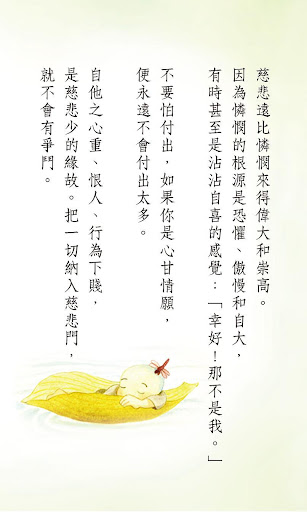 慈悲遠比憐憫來得偉大和崇高。
因為憐憫的根源是恐懼、傲慢和自大，
有時甚至是沾沾自喜的感覺：「幸好！那不是我。」
不要怕付出，如果你是心甘情願，
便永遠不會付出太多。
自他之心重、恨人、行為下賤，
是慈悲少的緣故。把一切納入慈悲門，
就不會有爭鬥。